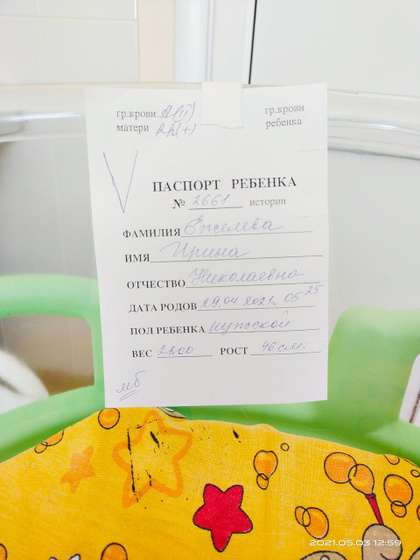 гр.крови A(II) гр.крови
матери Rh(+) ребенка
ПАСПОРТ РЕБЕНКА
№ 2661 истории
ФАМИЛИЯ
ИМЯ Ирина
ОТЧЕСТВО Николаевна
ДАТА РОДОВ 29.04 2021г. 05 25
ПОЛ РЕБЕНКА мужской
ВЕС 2800 РОСТ 46 см.
мб
2021.05.03 12:59